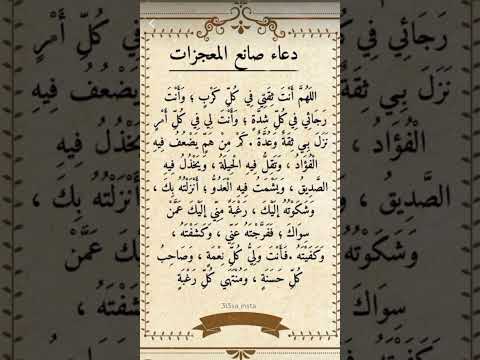 دعاء صانع المعجزات
اللّهُمَّ أَنْتَ ثِقَتِي فِي كُلِّ كَرْبٍ ؛ وَأَنْتَ
رَجَائِي فِي كُلِّ شِدَّةٍ ؛ وَأَنْتَ لِي فِي كُلِّ أَمْرٍ
نَزَلَ بِي ثِقَةٌ وَعُدَّةٌ . كَمْ مِنْ هَمٍّ يَضْعُفُ فِيهِ
الْفُؤَادُ ، وَتَقِلُّ فِيهِ الْحِيلَةُ ، وَيَخْذُلُ فِيهِ
الصَّدِيقُ ، وَيَشْمَتُ فِيهِ الْعَدُوُّ ؛ أَنْزَلْتُهُ بِكَ ،
وَشَكَوْتُهُ إِلَيْكَ ، رَغْبَةً مِنِّي إِلَيْكَ عَمَّنْ
سِوَاكَ ؛ فَفَرَّجْتَهُ عَنِّي ، وَكَشَفْتَهُ ،
وَكَفَيْتَهُ . فَأَنْتَ وَلِيُّ كُلِّ نِعْمَةٍ ، وَصَاحِبُ
كُلِّ حَسَنَةٍ ، وَمُنْتَهَى كُلِّ رَغْبَةٍ